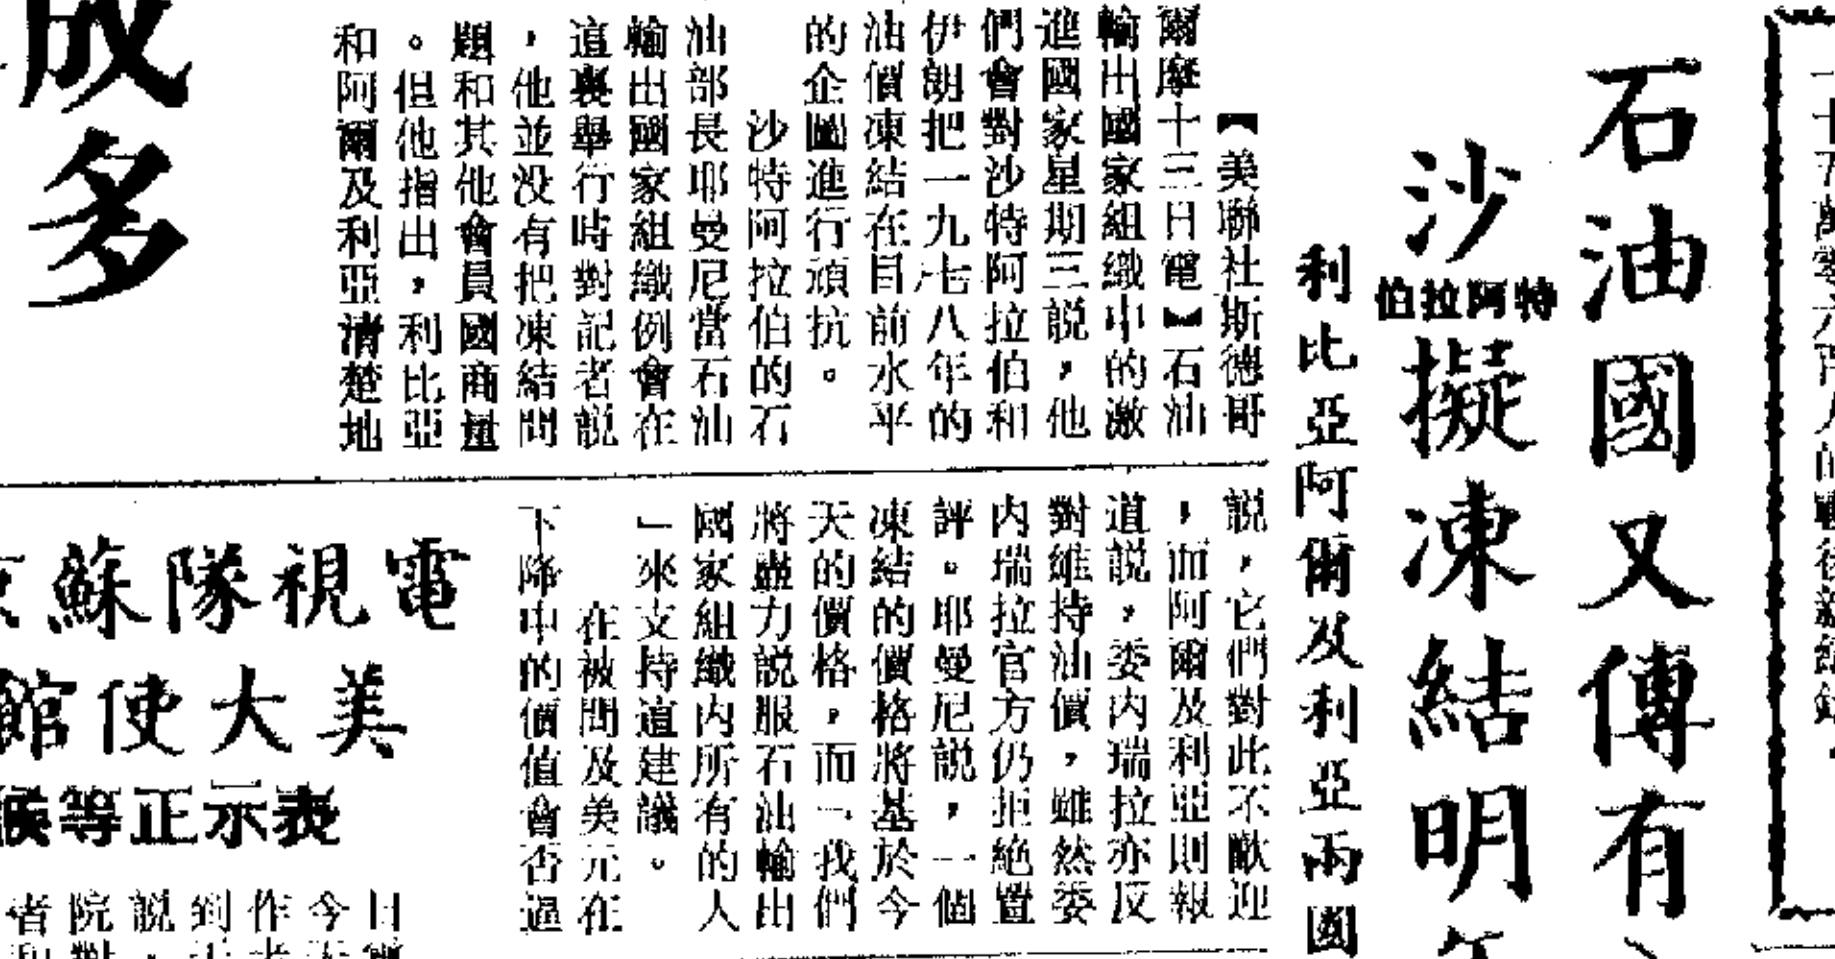 石油國又傳有
沙特阿拉伯擬凍結明年
利比亞阿爾及利亞兩國
【美聯社斯德哥
爾摩十三日電】石油
輸出國家組織中的激
進國家星期三說，他
們會對沙特阿拉伯和
伊朗把一九七八年的
油價凍結在目前水平
的企圖進行頑抗。
沙特阿拉伯的石
油部長耶曼尼當石油
輸出國家組織例會在
這裏舉行時對記者說
，他並没有把凍結問
題和其他會員國商量
。但他指出，利比亞
和阿爾及利亞清楚地
說，它們對此不歡迎
，而阿爾及利亞則報
道說，委内瑞拉亦反
對維持油價，雖然委
内瑞拉官方仍拒絶置
評。耶曼尼說，一個
凍結的價格將基於今
天的價格，而「我們
將盡力說服石油輸出
國家組織内所有的人
」來支持這建議。
在被問及美元在
下降中的價值會否逼
成多
電視隊蘇
美大使館
表示正等候
日電
今天
作
到
說
院對
者和